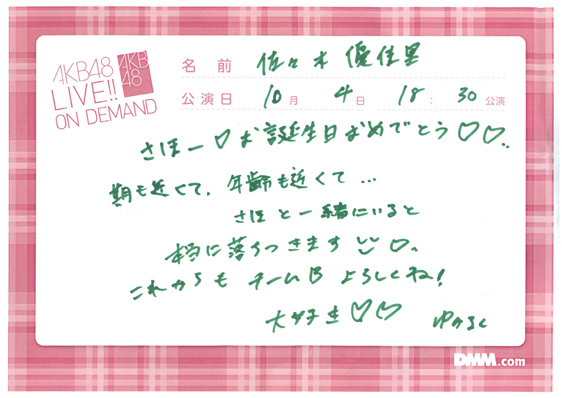 AKB48
LIVE!!
ON DEMAND
AKB
48
名前 佐々木 優佳里
公演日 10月 4日 18:30公演
さほー♡お誕生日おめでとう♡♡..
期も近くて、年齢も近くて...
さほと一緒にいると
本当に落ちつきます ♡..
これからも チームB よろしくね!
大好き♡♡ ゆかるん
DMM.com